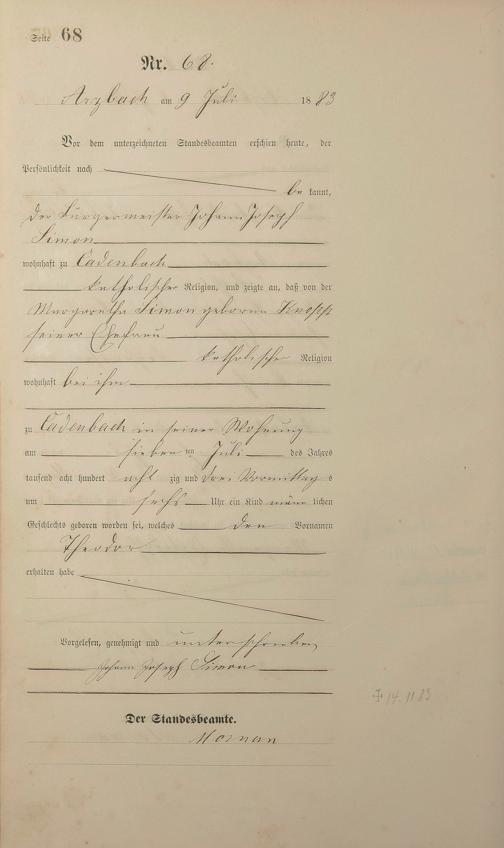 Seite 68
Nr. 68.
Arzbach am 9 Juli 1883
Vor dem unterzeichneten Standesbeamten erschien heute, der
Persönlichkeit nach
be kannt,
der Bürgermeister Johann Joseph
Simon
wohnhaft zu Cadenbach
katholischer Religion, und zeigte an, daß von der
Margaretha Simon geborene
seiner Ehefrau
katholischer Religion
wohnhaft bei ihm
zu Cadenbach in seiner Wohnung
am sieben ten Juli des Jahres
tausend acht hundert acht zig und drei Vormittag s
um sechs Uhr ein Kind männ lichen
Geschlechts geboren worden sei, welches den Vornamen
Theodor
erhalten habe
Vorgelesen, genehmigt und unterschrieben
Johann Joseph Simon
Der Standesbeamte.
14.11.83